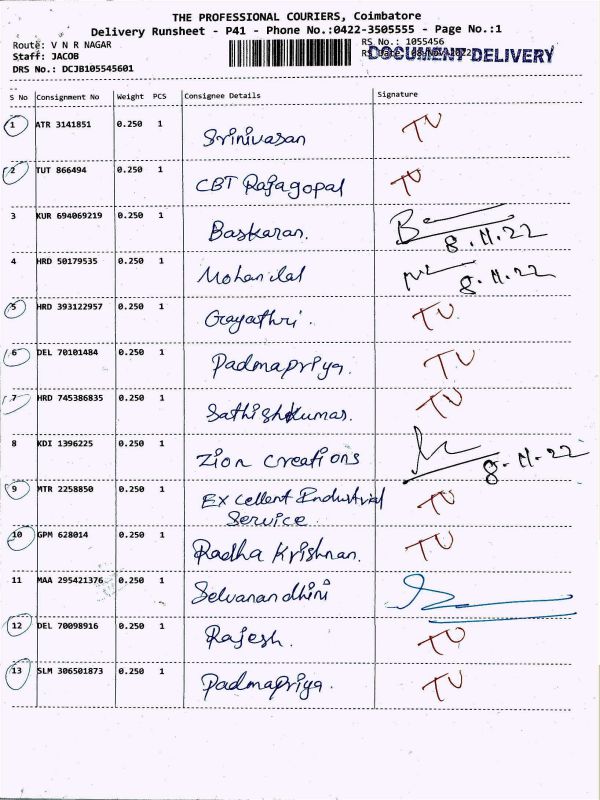 THE PROFESSIONAL COURIERS, Coimbatore
Delivery Runsheet - P41 - Phone No.:0422-3505555 - Page No.:1
Route: V N R NAGAR
RS No.: 1055456
Staff: JACOB
RS Date: 08-NOV-2022
DOCUMENT DELIVERY
DRS No.: DCJB105545601
S No Consignment No Weight PCS Consignee Details Signature
1 ATR 3141851 0.250 1 Srinivasan TU
2 TUT 866494 0.250 1 CBT Rajagopal TU
3 KUR 694069219 0.250 1 Baskaran. 8.11.22
4 HRD 50179535 0.250 1 Mohanlal 8.11.22
5 HRD 393122957 0.250 1 Gayathri. TU
6 DEL 70101484 0.250 1 Padmapriya. TU
7 HRD 745386835 0.250 1 Sathishkumar. TU
8 KDI 1396225 0.250 1 Zion Creations 8.11.22
9 MTR 2258850 0.250 1 Excellent Industrial TU
Service.
10 GPM 628014 0.250 1 Radha Krishnan. TU
11 MAA 295421376 0.250 1 Selvanandhini
12 DEL 70098916 0.250 1 Rajesh. TU
13 SLM 306501873 0.250 1 Padmapriya. TU